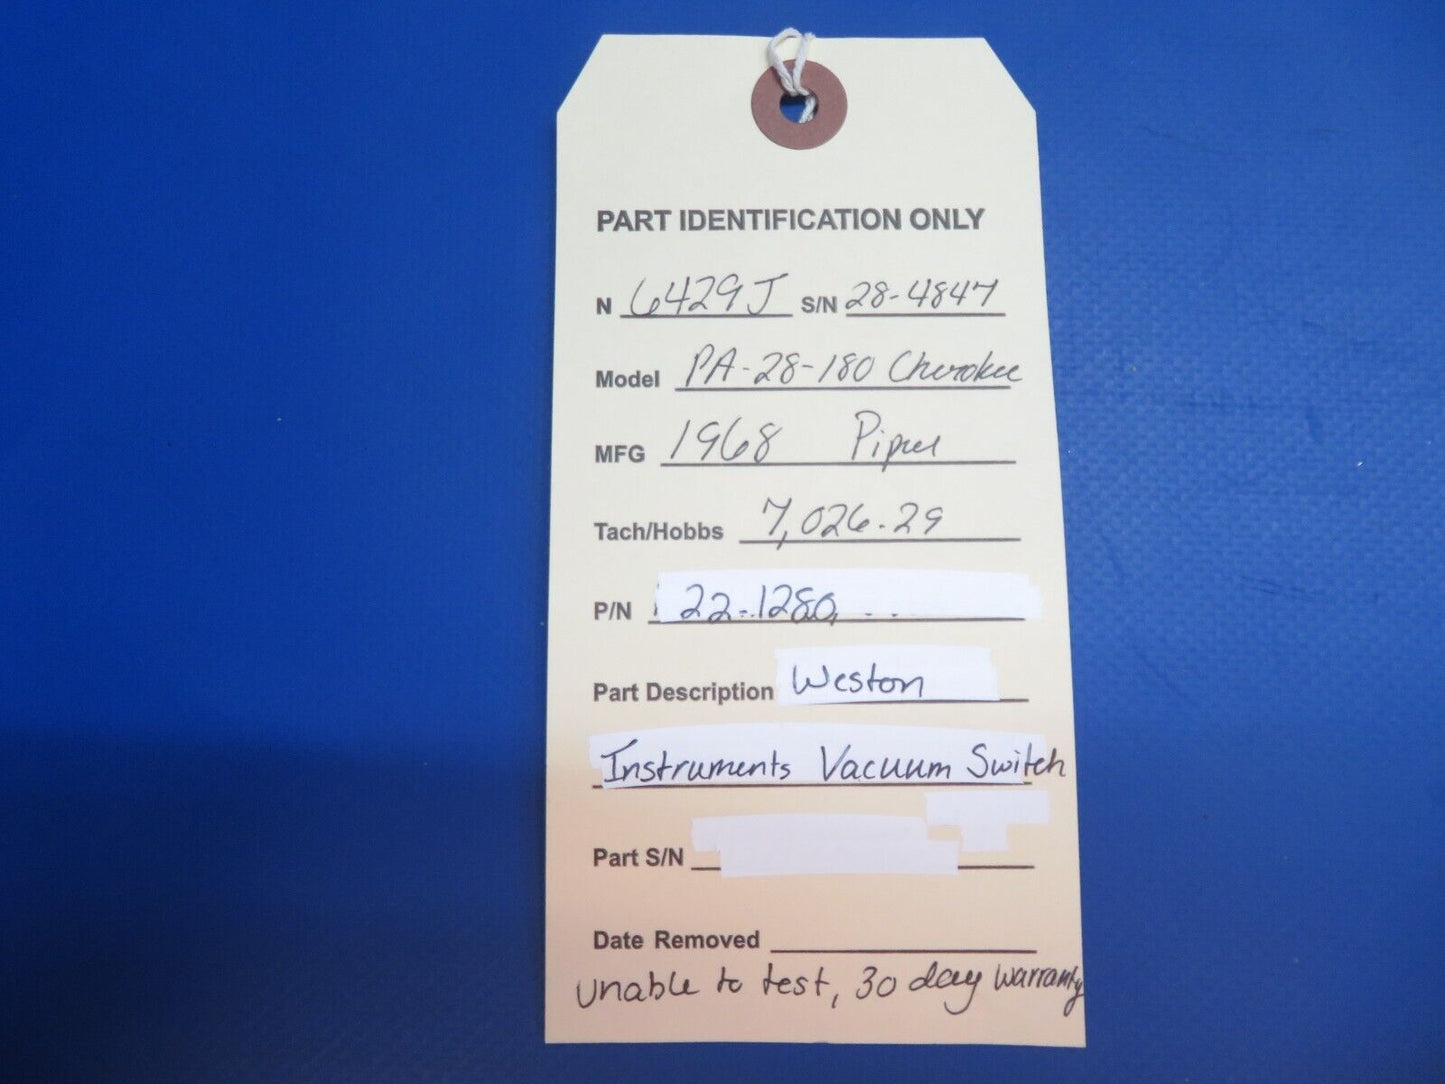 PART IDENTIFICATION ONLY
N 6429J S/N 28-4847
Model PA-28-180 Cherokee
MFG 1968 Piper
Tach/Hobbs 7,026.29
P/N 22-1280
Part Description Weston
Instruments Vacuum Switch
Part S/N
Date Removed
unable to test, 30 day warranty